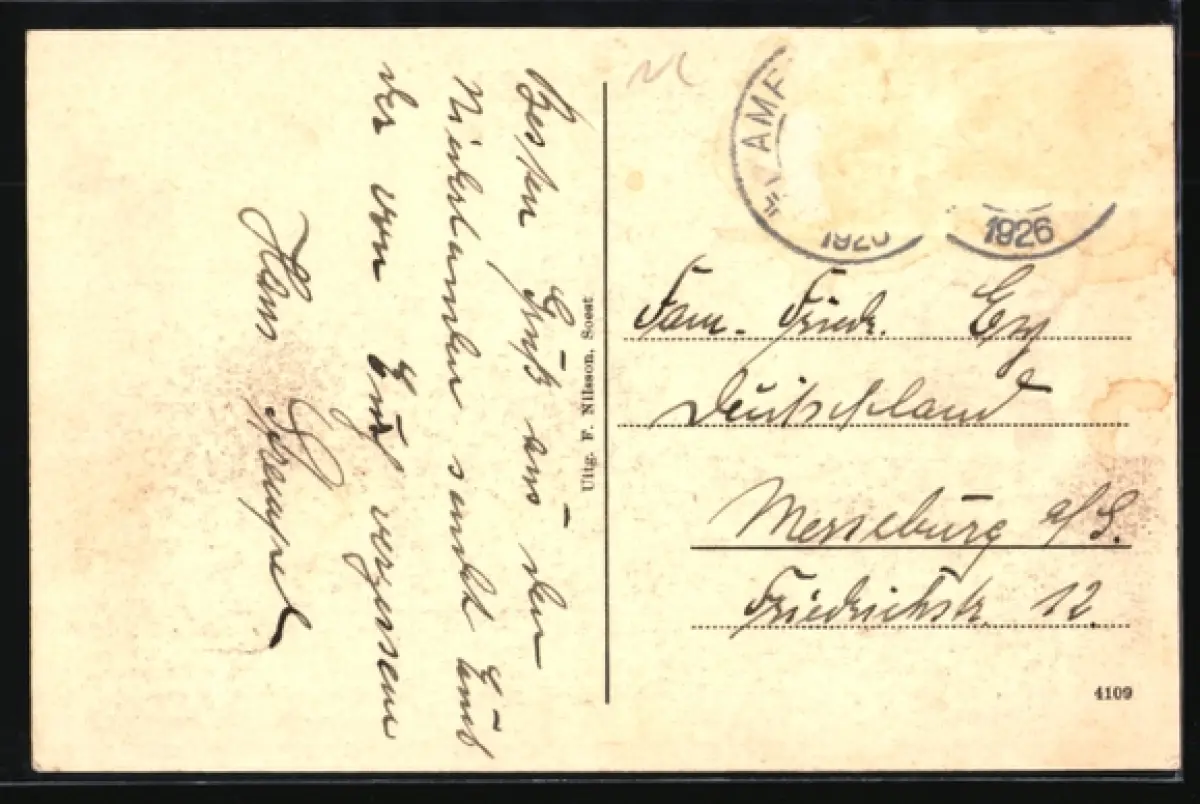 Besten Gruß aus den
Niederlanden sendet Euch
der von Euch vergessene
Hans
Uitg. F. Nilsson, Soest
AME
1926
1926
Fam. Friedr.
Deutschland
Merseburg a/S.
Friedrichstr. 12.
4109